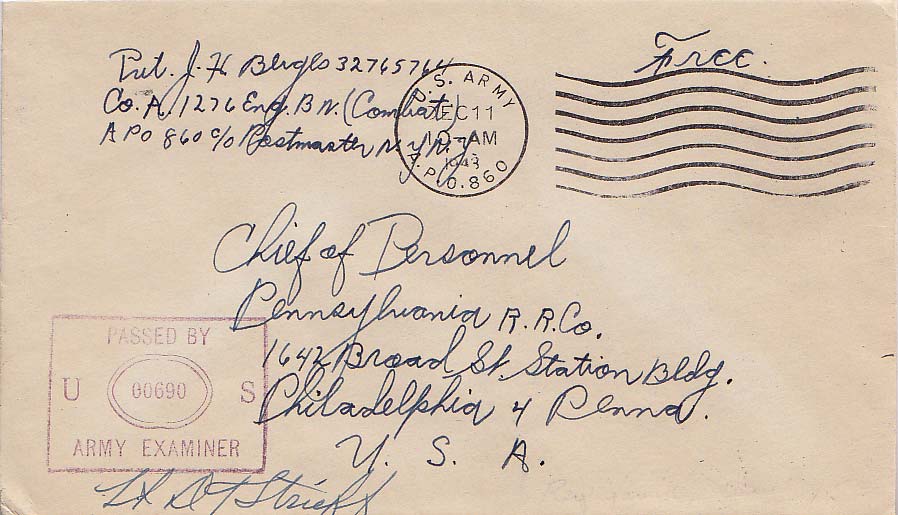 Pvt. J. H. Blvgls 32765764
Co. A, 1276 Eng. B N. (Combat)
A PO 860 c/o Postmaster N.Y. N.Y.
Free.
U.S. ARMY
DEC 11
10-AM
1943
A.P.O. 860
Chief of Personnel
Pennsylvania R. R. Co.
1642 Broad St. Station Bldg.
Philadelphia 4 Penna.
U. S. A.
PASSED BY
U 00690 S
ARMY EXAMINER